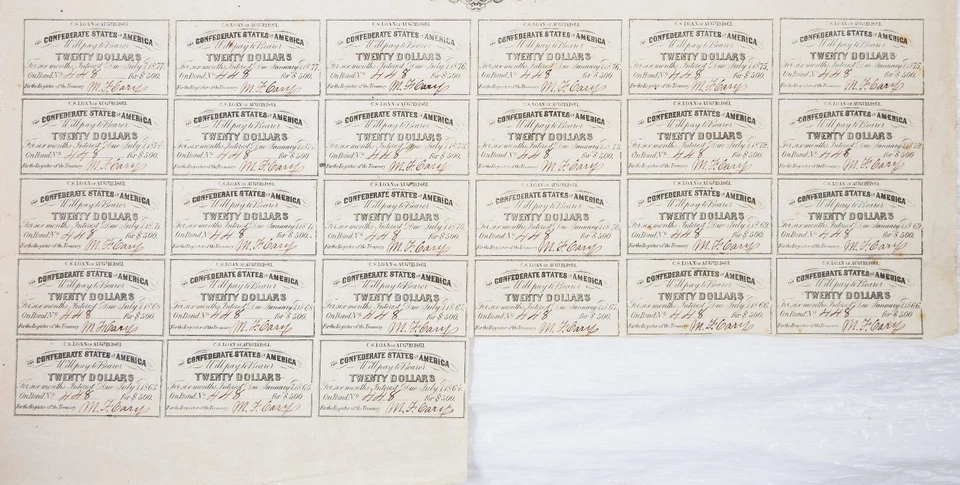 C.S. LOAN OF AUGT 19.1861.
THE CONFEDERATE STATES OF AMERICA
Will pay to Bearer
TWENTY DOLLARS
For six months Interest Due July 1.1877.
On Bond No 448 for $500.
For the Register of the Treasury M. F. Cary
C.S. LOAN OF AUGT 19.1861.
THE CONFEDERATE STATES OF AMERICA
Will pay to Bearer
TWENTY DOLLARS
For six months Interest Due January 1.1877.
On Bond No 448 for $500.
For the Register of the Treasury M. F. Cary
C.S. LOAN OF AUGT 19.1861.
THE CONFEDERATE STATES OF AMERICA
Will pay to Bearer
TWENTY DOLLARS
For six months Interest Due July 1.1876.
On Bond No 448 for $500.
For the Register of the Treasury M. F. Cary
C.S. LOAN OF AUGT 19.1861.
THE CONFEDERATE STATES OF AMERICA
Will pay to Bearer
TWENTY DOLLARS
For six months Interest Due January 1.1876.
On Bond No 448 for $500.
For the Register of the Treasury M. F. Cary
C.S. LOAN OF AUGT 19.1861.
THE CONFEDERATE STATES OF AMERICA
Will pay to Bearer
TWENTY DOLLARS
For six months Interest Due July 1.1875.
On Bond No 448 for $500.
For the Register of the Treasury M. F. Cary
C.S. LOAN OF AUGT 19.1861.
THE CONFEDERATE STATES OF AMERICA
Will pay to Bearer
TWENTY DOLLARS
For six months Interest Due January 1.1875.
On Bond No 448 for $500.
For the Register of the Treasury M. F. Cary
C.S. LOAN OF AUGT 19.1861.
THE CONFEDERATE STATES OF AMERICA
Will pay to Bearer
TWENTY DOLLARS
For six months Interest Due July 1.1874.
On Bond No 448 for $500.
For the Register of the Treasury M. F. Cary
C.S. LOAN OF AUGT 19.1861.
THE CONFEDERATE STATES OF AMERICA
Will pay to Bearer
TWENTY DOLLARS
For six months Interest Due January 1.1874.
On Bond No 448 for $500.
For the Register of the Treasury M. F. Cary
C.S. LOAN OF AUGT 19.1861.
THE CONFEDERATE STATES OF AMERICA
Will pay to Bearer
TWENTY DOLLARS
For six months Interest Due July 1.1873.
On Bond No 448 for $500.
For the Register of the Treasury M. F. Cary
C.S. LOAN OF AUGT 19.1861.
THE CONFEDERATE STATES OF AMERICA
Will pay to Bearer
TWENTY DOLLARS
For six months Interest Due January 1.1873.
On Bond No 448 for $500.
For the Register of the Treasury M. F. Cary
C.S. LOAN OF AUGT 19.1861.
THE CONFEDERATE STATES OF AMERICA
Will pay to Bearer
TWENTY DOLLARS
For six months Interest Due July 1.1872.
On Bond No 448 for $500.
For the Register of the Treasury M. F. Cary
C.S. LOAN OF AUGT 19.1861.
THE CONFEDERATE STATES OF AMERICA
Will pay to Bearer
TWENTY DOLLARS
For six months Interest Due January 1.1872.
On Bond No 448 for $500.
For the Register of the Treasury M. F. Cary
C.S. LOAN OF AUGT 19.1861.
THE CONFEDERATE STATES OF AMERICA
Will pay to Bearer
TWENTY DOLLARS
For six months Interest Due July 1.1871.
On Bond No 448 for $500.
For the Register of the Treasury M. F. Cary
C.S. LOAN OF AUGT 19.1861.
THE CONFEDERATE STATES OF AMERICA
Will pay to Bearer
TWENTY DOLLARS
For six months Interest Due January 1.1871.
On Bond No 448 for $500.
For the Register of the Treasury M. F. Cary
C.S. LOAN OF AUGT 19.1861.
THE CONFEDERATE STATES OF AMERICA
Will pay to Bearer
TWENTY DOLLARS
For six months Interest Due July 1.1870.
On Bond No 448 for $500.
For the Register of the Treasury M. F. Cary
C.S. LOAN OF AUGT 19.1861.
THE CONFEDERATE STATES OF AMERICA
Will pay to Bearer
TWENTY DOLLARS
For six months Interest Due January 1.1870.
On Bond No 448 for $500.
For the Register of the Treasury M. F. Cary
C.S. LOAN OF AUGT 19.1861.
THE CONFEDERATE STATES OF AMERICA
Will pay to Bearer
TWENTY DOLLARS
For six months Interest Due July 1.1869.
On Bond No 448 for $500.
For the Register of the Treasury M. F. Cary
C.S. LOAN OF AUGT 19.1861.
THE CONFEDERATE STATES OF AMERICA
Will pay to Bearer
TWENTY DOLLARS
For six months Interest Due January 1.1869.
On Bond No 448 for $500.
For the Register of the Treasury M. F. Cary
C.S. LOAN OF AUGT 19.1861.
THE CONFEDERATE STATES OF AMERICA
Will pay to Bearer
TWENTY DOLLARS
For six months Interest Due July 1.1868.
On Bond No 448 for $500.
For the Register of the Treasury M. F. Cary
C.S. LOAN OF AUGT 19.1861.
THE CONFEDERATE STATES OF AMERICA
Will pay to Bearer
TWENTY DOLLARS
For six months Interest Due January 1.1868.
On Bond No 448 for $500.
For the Register of the Treasury M. F. Cary
C.S. LOAN OF AUGT 19.1861.
THE CONFEDERATE STATES OF AMERICA
Will pay to Bearer
TWENTY DOLLARS
For six months Interest Due July 1.1867.
On Bond No 448 for $500.
For the Register of the Treasury M. F. Cary
C.S. LOAN OF AUGT 19.1861.
THE CONFEDERATE STATES OF AMERICA
Will pay to Bearer
TWENTY DOLLARS
For six months Interest Due January 1.1867.
On Bond No 448 for $500.
For the Register of the Treasury M. F. Cary
C.S. LOAN OF AUGT 19.1861.
THE CONFEDERATE STATES OF AMERICA
Will pay to Bearer
TWENTY DOLLARS
For six months Interest Due July 1.1866.
On Bond No 448 for $500.
For the Register of the Treasury M. F. Cary
C.S. LOAN OF AUGT 19.1861.
THE CONFEDERATE STATES OF AMERICA
Will pay to Bearer
TWENTY DOLLARS
For six months Interest Due January 1.1866.
On Bond No 448 for $500.
For the Register of the Treasury M. F. Cary
C.S. LOAN OF AUGT 19.1861.
THE CONFEDERATE STATES OF AMERICA
Will pay to Bearer
TWENTY DOLLARS
For six months Interest Due July 1.1865.
On Bond No 448 for $500.
For the Register of the Treasury M. F. Cary
C.S. LOAN OF AUGT 19.1861.
THE CONFEDERATE STATES OF AMERICA
Will pay to Bearer
TWENTY DOLLARS
For six months Interest Due January 1.1865.
On Bond No 448 for $500.
For the Register of the Treasury M. F. Cary
C.S. LOAN OF AUGT 19.1861.
THE CONFEDERATE STATES OF AMERICA
Will pay to Bearer
TWENTY DOLLARS
For six months Interest Due July 1.1864.
On Bond No 448 for $500.
For the Register of the Treasury M. F. Cary